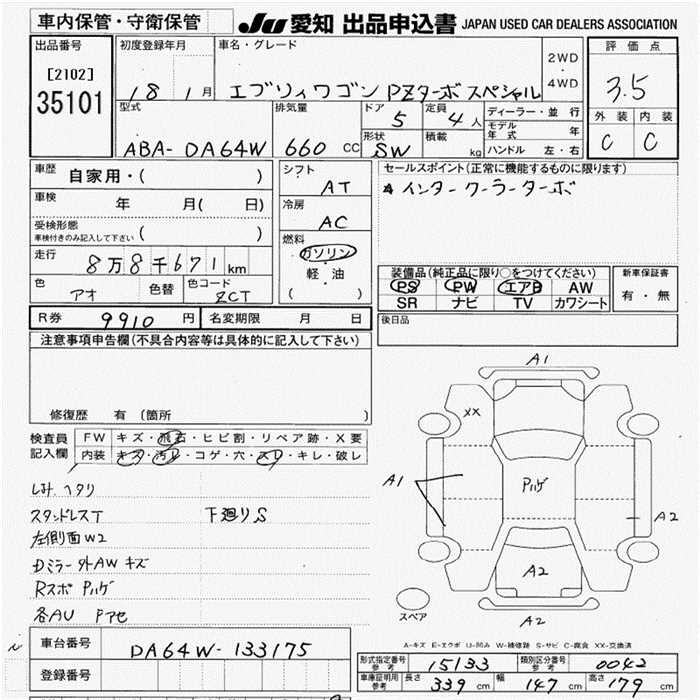 車内保管・守衛保管
JU 愛知 出品申込書 JAPAN USED CAR DEALERS ASSOCIATION
出品番号
[2102]
35101
初度登録年月
18 1月
車名・グレード
エブリィワゴン PZターボスペシャル
2WD
・
4WD
評価点
3.5
外装 内装
C C
型式
ABA- DA64W
排気量
660 CC
ドア
5
定員
4人
形状
SW
積載
kg
ディーラー・並行
モデル年式 年
ハンドル 左・右
車歴
自家用・( )
車検
年 月( 日)
受検形態
車検付きのみ記入して下さい ( )
走行
8万8千671km
色
アオ
色替
色コード
ZCT
シフト
AT
冷房
AC
燃料
ガソリン
・
軽油
( )
セールスポイント(正常に機能するものに限ります)
インタークーラーターボ
装備品(純正品に限り○をつけてください)
PS PW エアB AW
SR ナビ TV カワシート
新車保証書
有・無
R券 9910円
名変期限 月 日
後日品
注意事項申告欄(不具合内容等は具体的に記入して下さい)
修復歴 有(箇所 )
検査員
記入欄
FW キズ・飛石・ヒビ割・リペア跡・X要
内装 キズ・汚れ・コゲ・穴・スレ・キレ・破レ
シートヘタリ
スタンドレスT 下廻りS
左側面W2
Dミラー外AWキズ
Rスポ Pハゲ
各AU Pアセ
A1
XX
A1
Pハゲ
A2
A2
A2
スペア
A-キズ E-エクボ U-凹み W-補修跡 S-サビ C-腐食 XX-交換済
車台番号
DA64W-133175
登録番号
形式指定番号
参考
15133
類別区分番号
参考
0042
車庫証明用
参考
長さ 339 cm 幅 147 cm 高さ 179 cm